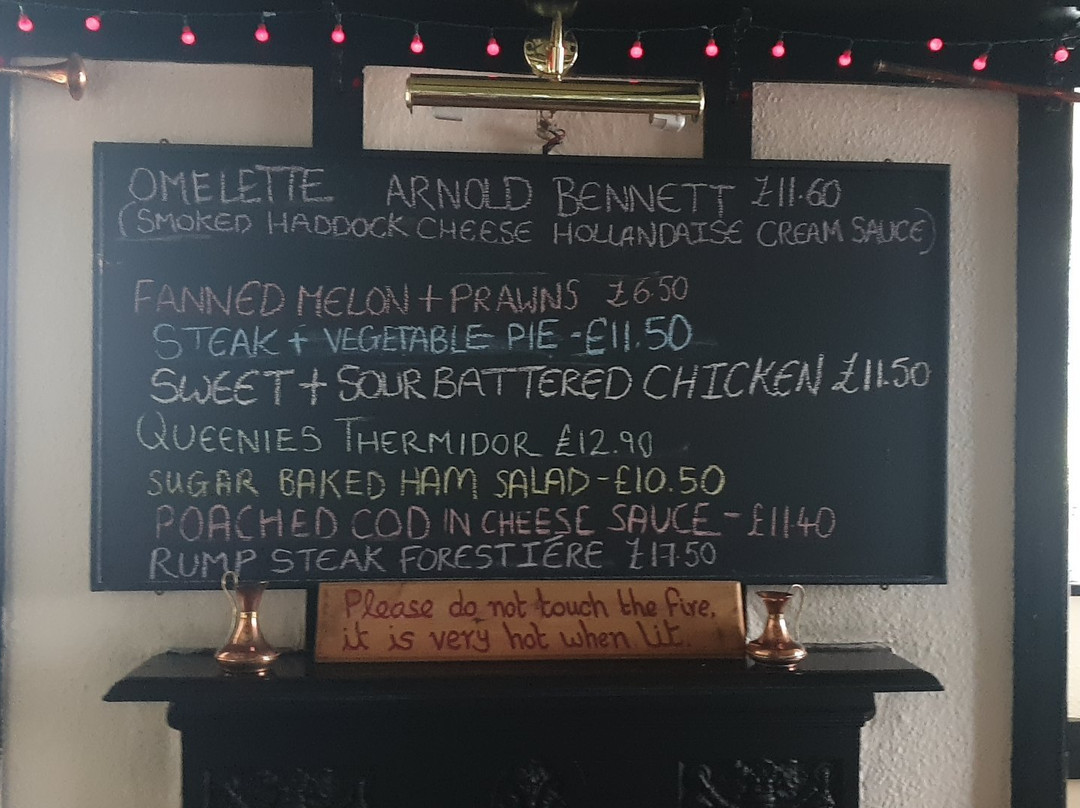 OMELETTE ARNOLD BENNETT £11.60
(SMOKED HADDOCK CHEESE HOLLANDAISE CREAM SAUCE)
FANNED MELON + PRAWNS £6.50
STEAK + VEGETABLE PIE - £11.50
SWEET + SOUR BATTERED CHICKEN £11.50
QUEENIES THERMIDOR £12.90
SUGAR BAKED HAM SALAD - £10.50
POACHED COD IN CHEESE SAUCE - £11.40
RUMP STEAK FORESTIÉRE £17.50
Please do not touch the fire,
it is very hot when lit.